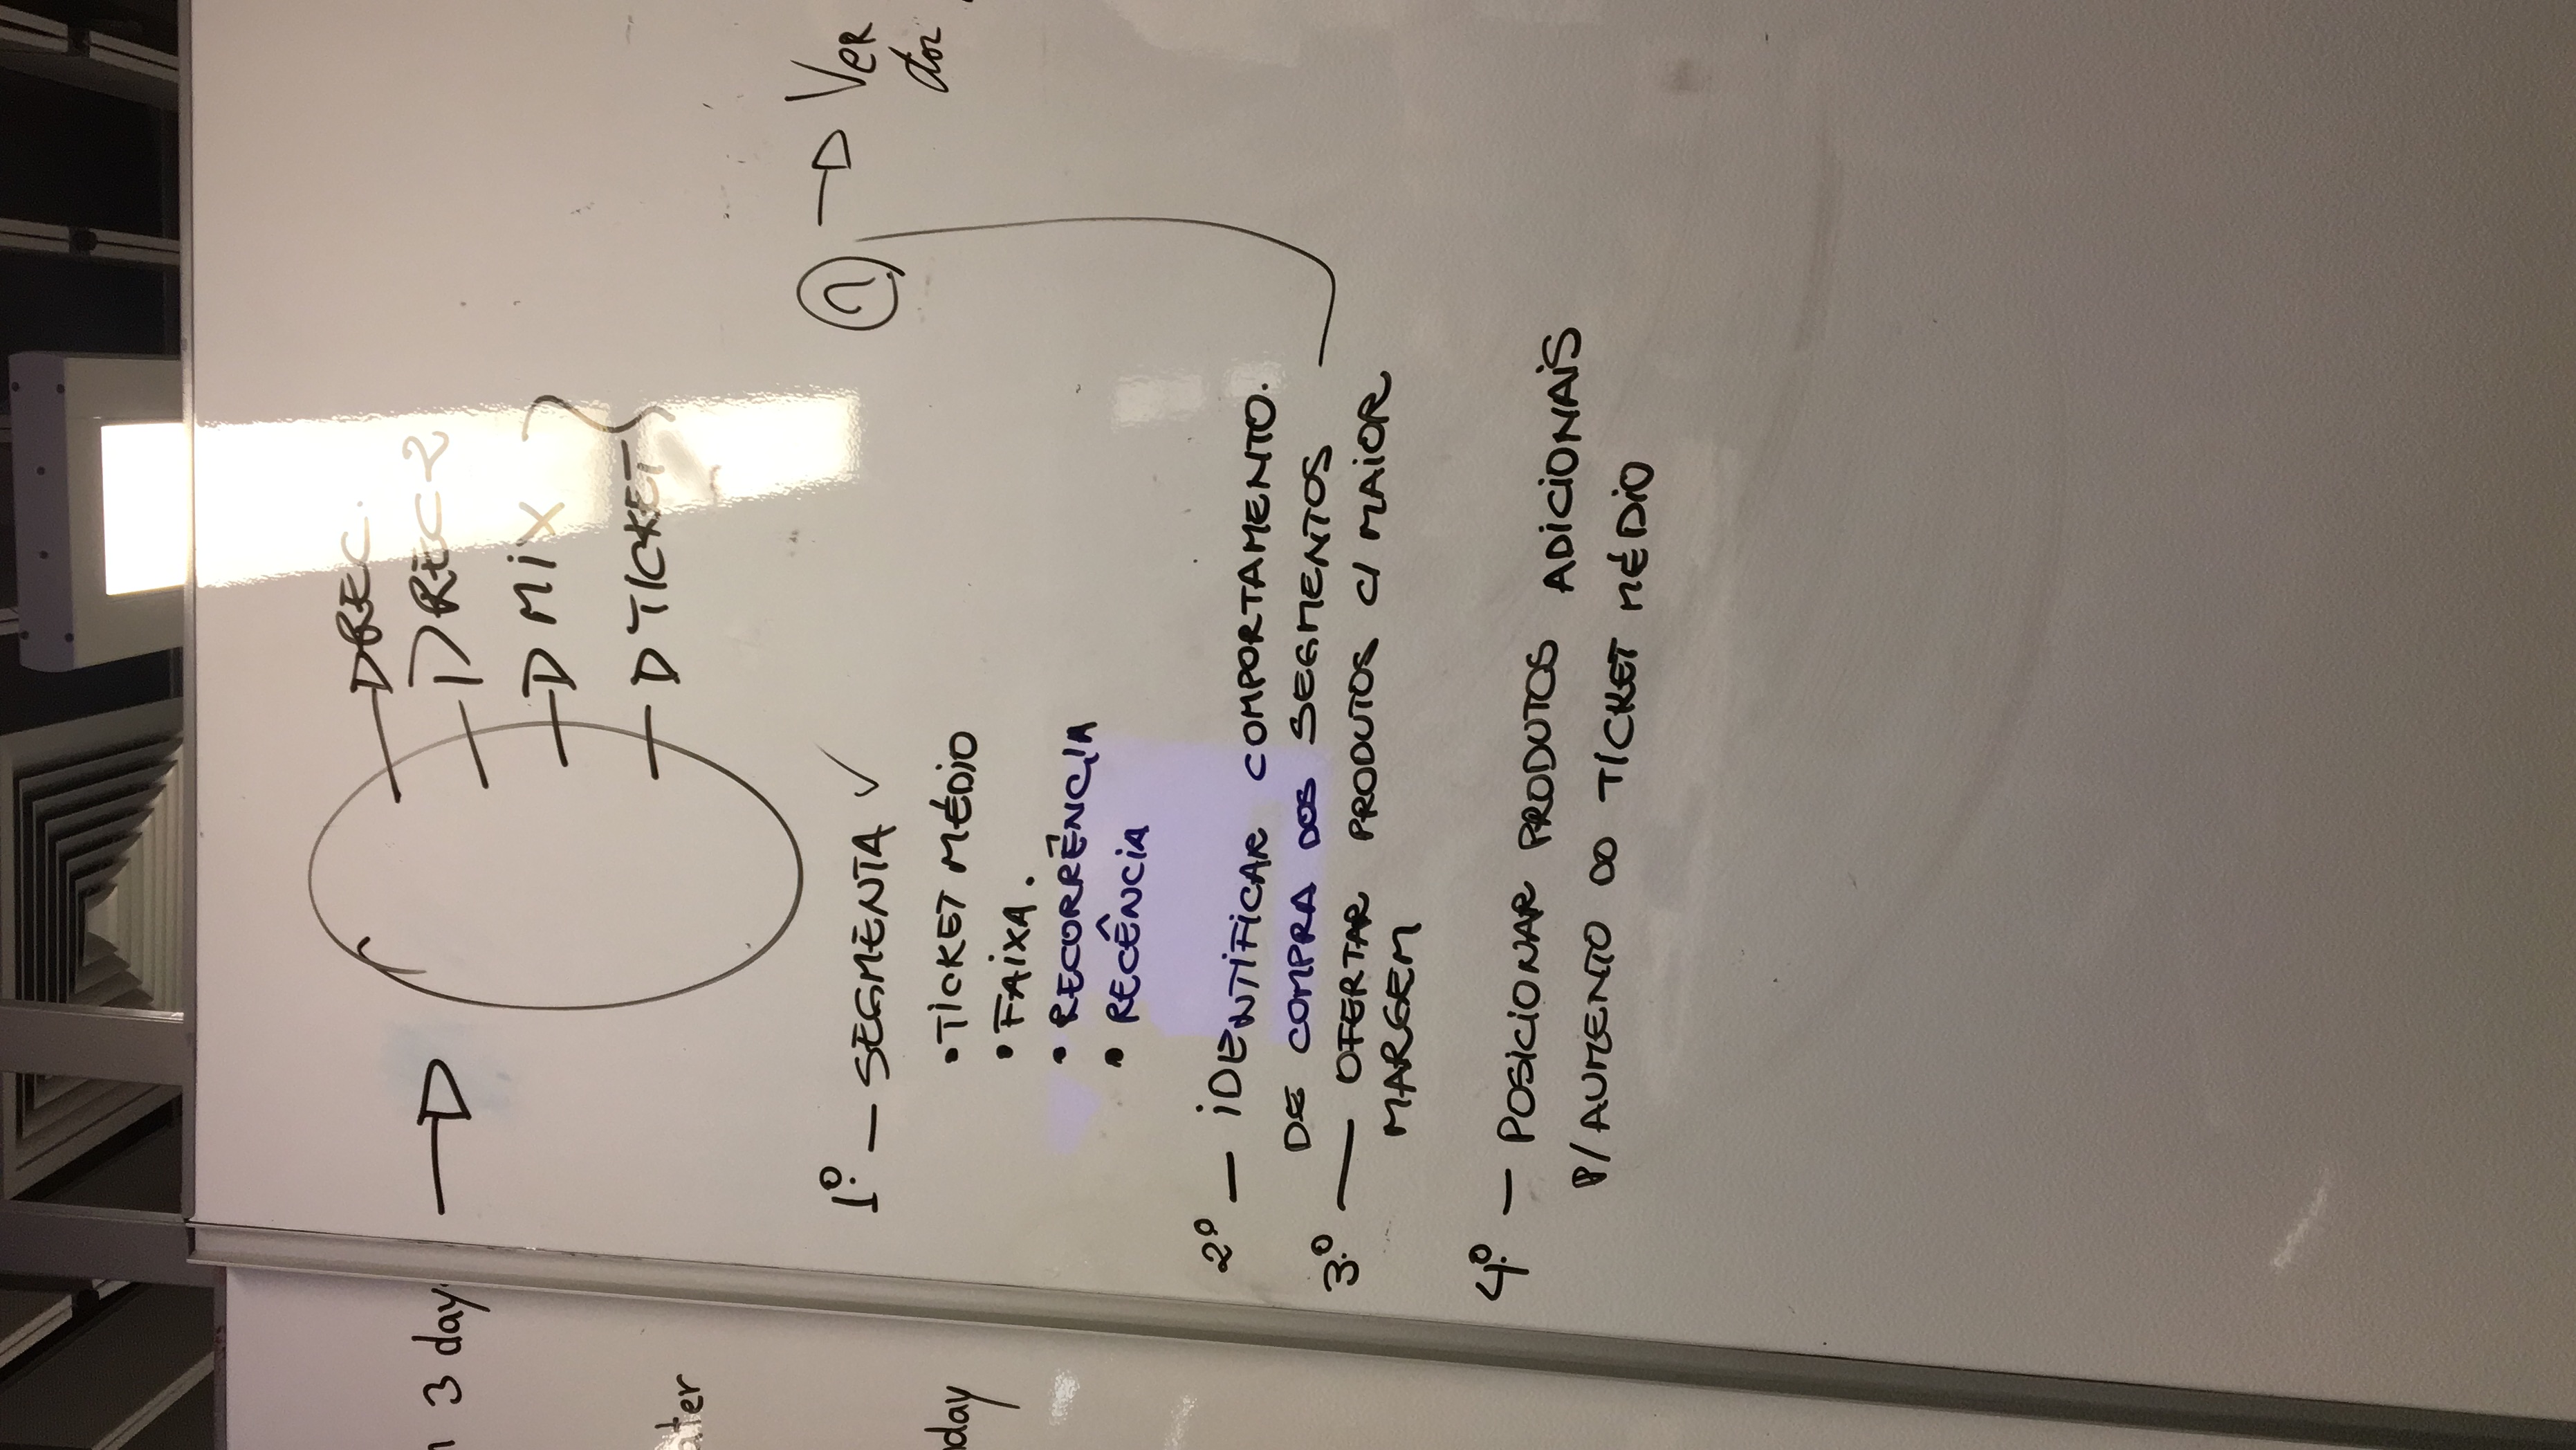 3 day
ater
day
REC.
REC 2
MIX
TICKET
1º — SEGMENTA ✓
• TICKET MÉDIO
• FAIXA.
• RECORRÊNCIA
• RECÊNCIA
2º — IDENTIFICAR COMPORTAMENTO.
DE COMPRA DOS SEGMENTOS
3º — OFERTAR PRODUTOS C/ MAIOR
MARGEM
4º — POSICIONAR PRODUTOS ADICIONAIS
P/ AUMENTO DO TICKET MÉDIO
VER